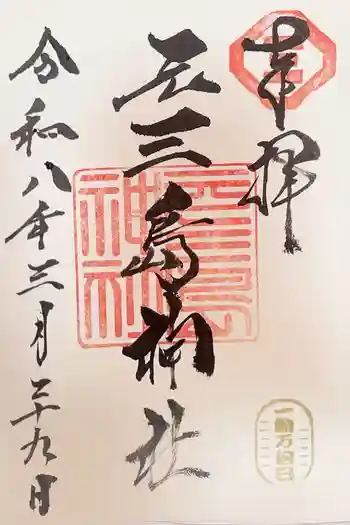 奉拝
元三島神社
元三島
神社
令和八年三月二十九日
一粒万倍日